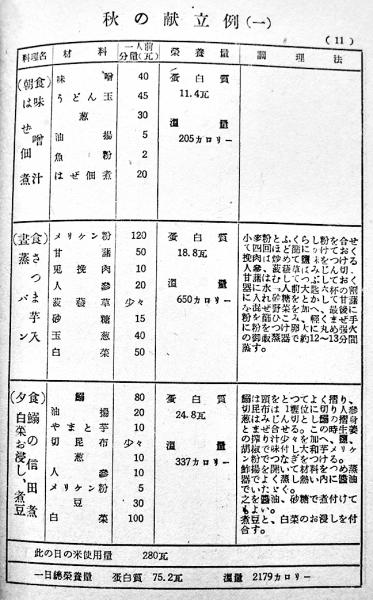 秋の献立例(一)
(11)
料理名 材料 一人前分量(瓦) 榮養量 調理法
(朝食) 味噌汁 はぜ佃煮
味噌 40
うどん玉 45
葱 30
油揚 5
魚粉 2
はぜ佃煮 20
蛋白質
11.4瓦
溫量
205カロリー
(晝食) さつま芋入蒸パン
メリケン粉 120
甘藷 50
兎挽肉 10
人參 20
菠薐草 少々
砂糖 15
玉葱 40
白菜 50
蛋白質
18.8瓦
溫量
650カロリー
小麥粉とふくらし粉を合せ
て四回ほど篩にかけておく
挽肉は炒めて鹽味をつける
人參、菠薐草はみじん切、
甘藷はむしてつぶしておく
器に水一人前大匙六杯の割
に入れ砂糖をとかして甘藷
を混ぜ野菜を加へ、最後に
粉を篩ひこみ、輕くまぜ手
に粉をつけ卵大に丸め强火
の御飯蒸器で約12〜13分間
蒸す。
(夕食) 鰯の信田煮 白菜お浸し、煮豆
鰯 80
油揚 20
やまと芋 10
切昆布 少々
葱 10
人參 10
メリケン粉 5
豆 30
白菜 100
蛋白質
24.8瓦
溫量
337カロリー
鰯は頭をとつてよく摺り、
切昆布は1糎位に切り人參
葱はみじん切とし鰯の摺身
とまぜ合せる。この時生姜
の搾り汁少々を加へ、鹽、
胡椒で味付し大和芋メリケ
ン粉でつなぎをつける。
鮓揚を開いて材料をつめ蒸
器でよく蒸し熱い內に醬油
でいたゞく。
之を醬油、砂糖で煮付けて
もよい。
煮豆と、白菜のお浸しを付
合す。
此の日の米使用量 280瓦
一日總榮養量 蛋白質 75.2瓦 溫量 2179カロリー